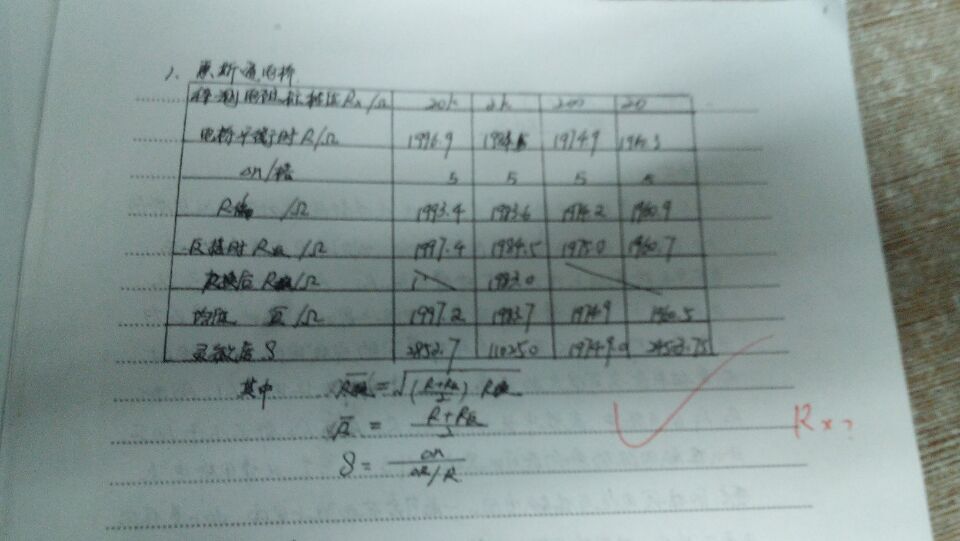 1、惠斯通电桥
待测电阻标称值Rx/Ω 20k 2k 200 20
电桥平衡时R/Ω 1996.9 1974.9 1960.3
Δn/格 5 5 5 5
/Ω 1993.4 1983.6 1974.2 1960.9
反接时R反/Ω 1997.4 1984.5 1975.0 1960.7
交换后 /Ω 1983.0
均值 R̅/Ω 1997.2 1983.7 1974.9 1960.5
灵敏度S 2852.7 11025.0 19749.0
其中
R̅ = (R+R反)/2
S = Δn/(ΔR/R)
Rx?